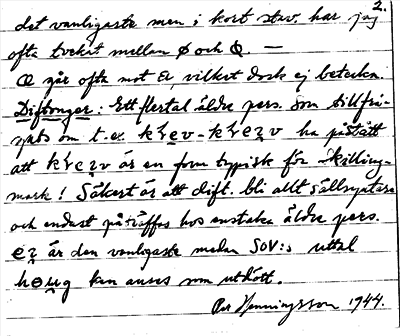 2.
det vanligaste men i kort stav. har jag
ofta tvekat mellan ø och Q. —
Œ går ofta mot a, vilket dock ej beteckn.
Diftonger: Ett flertal äldre pers. som tillfrå-
gats om t.ex. kvev - kvezv ha påstått
att kvezv är en form typisk för Skillings-
mark! Säkert är att dift. bli allt sällsyntare
och endast påträffas hos enstaka äldre pers.
ez är den vanligaste medan SOV:s uttal
høug kan anses som utdött.
Per Henningsson 1944.